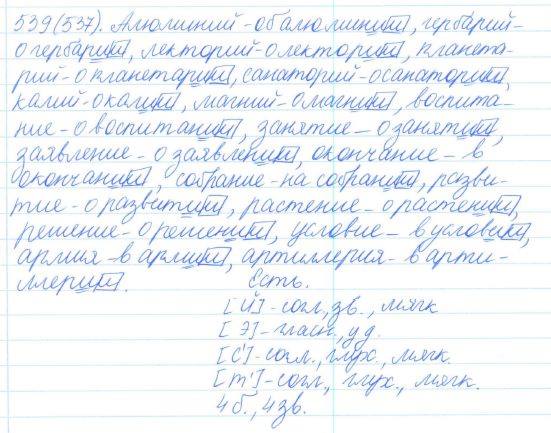 539(537). Алюминий - об алюминии, гербарий -
о гербарии, лекторий - о лектории, планета-
рий - о планетарии, санаторий - о санатории,
калий - о калии, магний - о магнии, воспита-
ние - о воспитании, занятие - о занятии,
заявление - о заявлении, окончание - в
окончании, собрание - на собрании, разви-
тие - о развитии, растение - о растении,
решение - о решении, условие - в условии,
армия - в армии, артиллерия - в арти-
ллерии. Есть.
[Й] - согл, зв., мягк
[Э] - гласн, уд.
[С'] - согл., глух., мягк.
[т'] - согл., глух., мягк.
4 б., 4 зв.